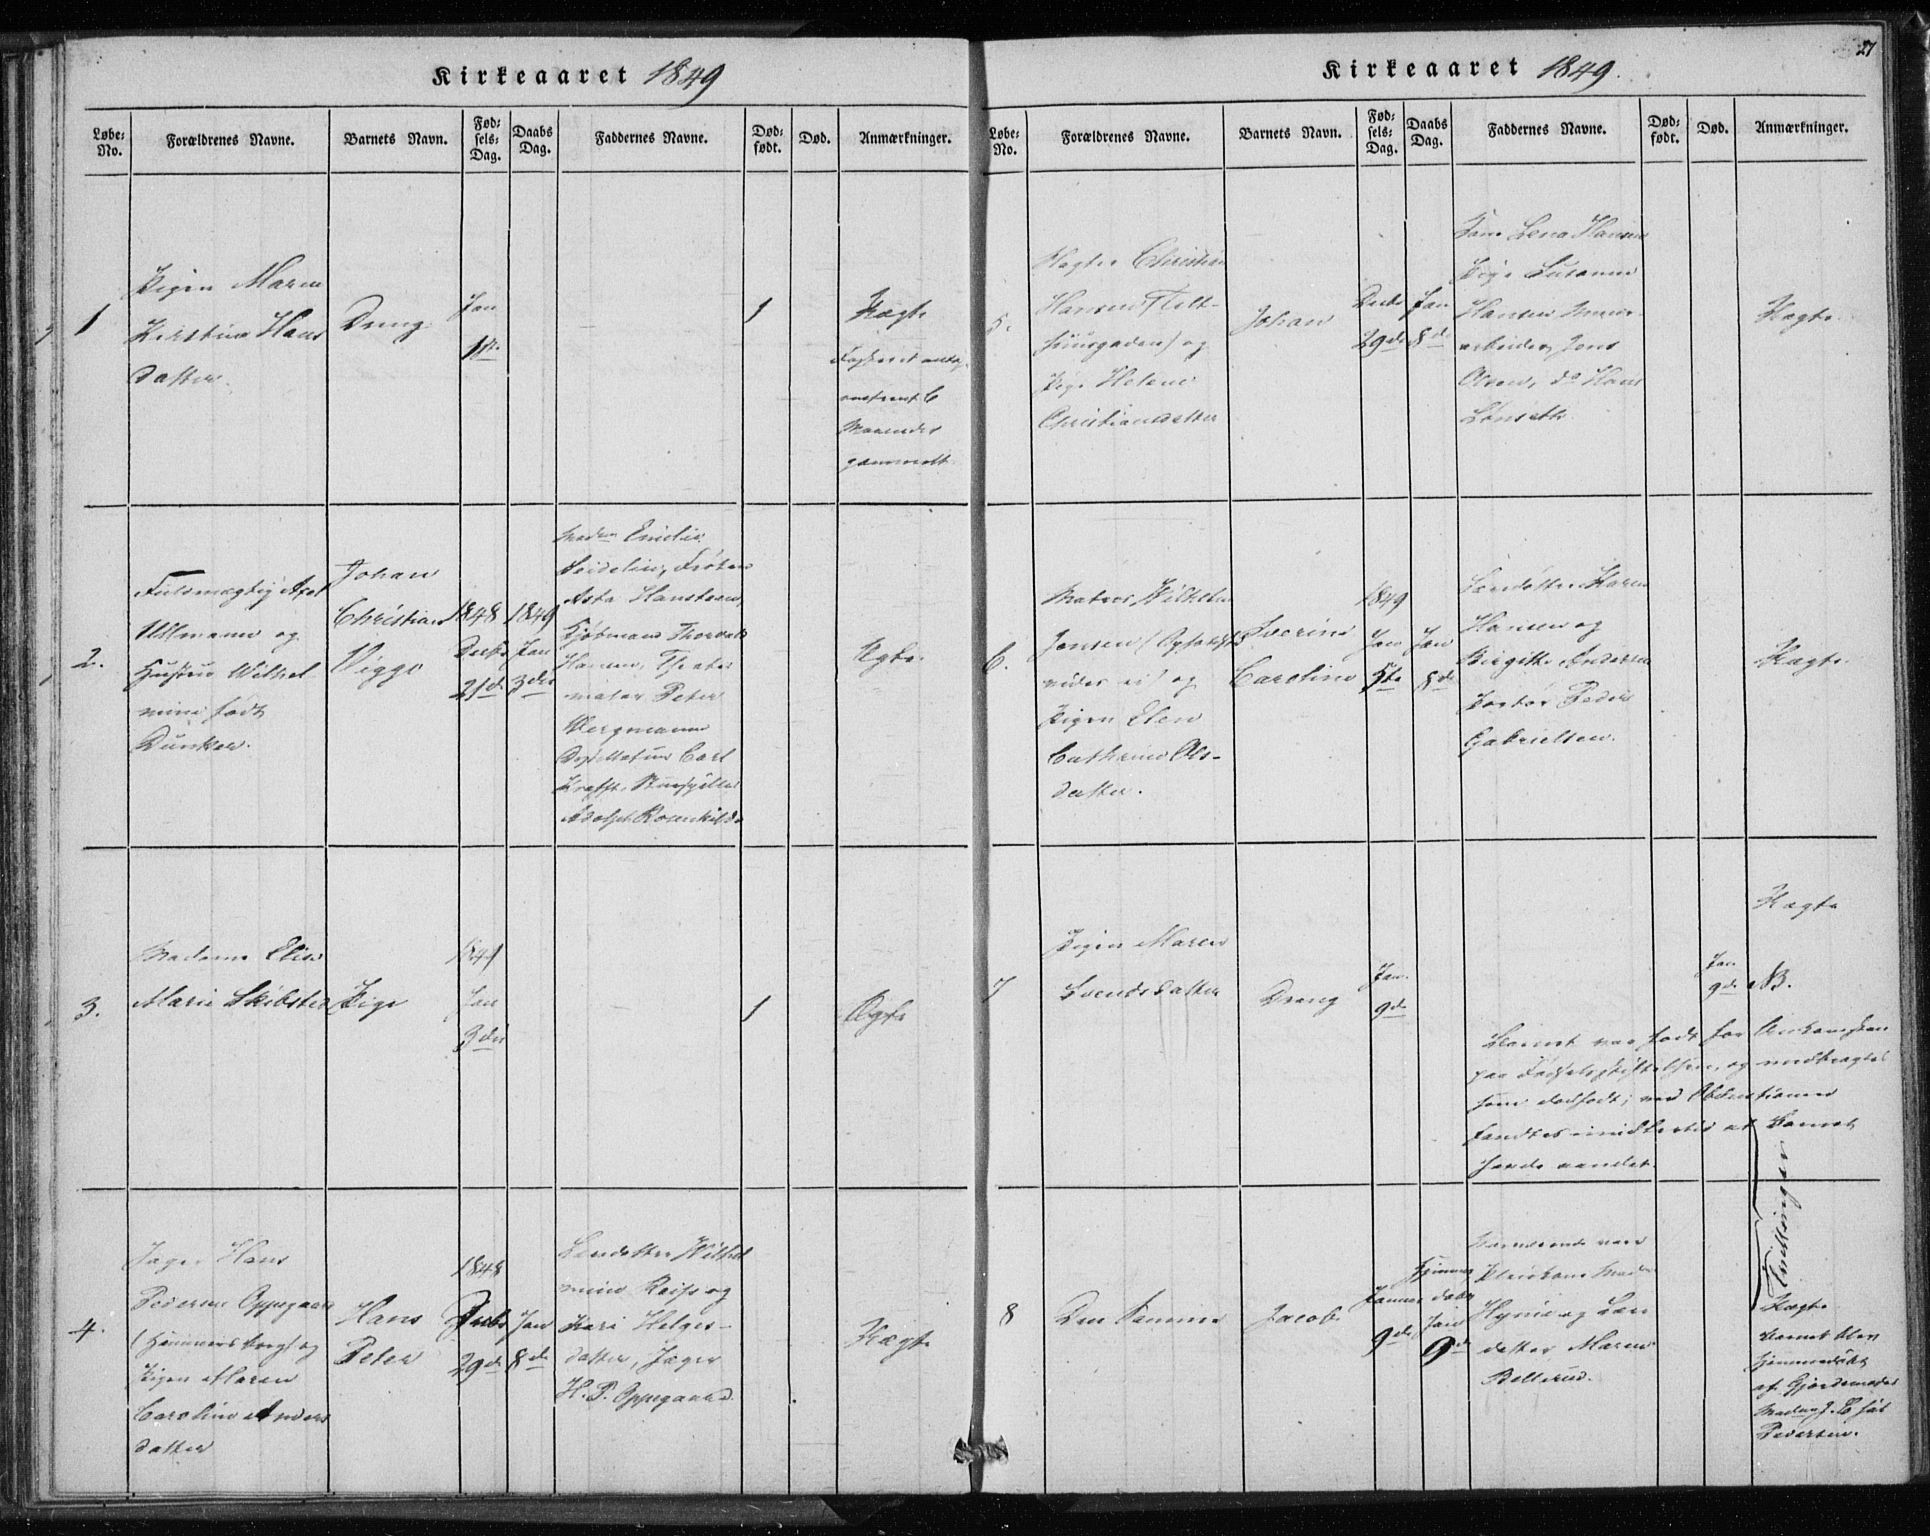 Kirkeaaret 1849
Løbe-No.
Forældrenes Navne.
Barnets Navn.
Fødsels-Dag.
Daabs Dag.
Faddernes Navne.
Dødfødt.
Død.
Anmærkninger.
1
Pigen Maren
Kirstine Hans
datter.
Dreng
Jan
1ste
1
Uægte
Fosteret
Maaneder
gammelt
2.
Fuldmægtig Axel
Ullmann og
Hustru Wilhel
mine født
Dunker.
Johan
Christian
Viggo
1848
Decbr
21de
1849
Jan
3die
Madm Emilie
Seidelin, Frøken
Asta Hansteen,
Kjøbmand Thorvald
Hansen, Theater
maler Peter
Wergmann
Carl
Krafft, Skuespiller
Adolph Rosenkilde
Ægte.
3.
Madame Elise
Marie Skibsted
Pige
1849
Jan
3die
1
Ægte
4.
Jæger Hans
Pedersen Oppegaard
og
Pigen Maren
Caroline Anders
datter
Hans
Peter
1848
Decbr
29de
Jan
8de
Wilhel
mine Reiss og
Kari Helges-
datter, Jæger
H. P. Oppegaard.
Uægte
Kirkeaaret 1849.
27
Løbe-No.
Forældrenes Navne.
Barnets Navn.
Fødsels-Dag.
Daabs Dag.
Faddernes Navne.
Dødfødt.
Død.
Anmærkninger.
5.
Christian
Hansen
og
Pige Helene
Christiansdatter
Johan
Decbr
29de
Jan
8de
Lena Hansen
Pige Susanne
Hansen
arbeider, Jens
Olsen, do Hans
Lønseth
Uægte.
6.
Matros, Wilhelm
Jensen
og
Pigen Elen
Cathrine Ols-
datter.
Severine
Caroline
1849
Jan
5te
Jan
8de
Karen
Hansen og
Birgitte Andersen
Peder
Gabrielsen.
Uægte.
7
Pigen Maren
Svendsdatter
Dreng
Jan.
9de
Jan
9de
Uægte
NB.
Barnet var født før Ankomsten
paa Fødselsstiftelsen, og medbragtes
som dødfødt; ved Obductionen
fandtes imidlertid at Barnet
havde aandet.
8
Den Samme
Jacob
Januar
9de
Hjemme
døbt
Jan
9de
Nærværende var
Madm
Hynne og
Maren
Bellerud.
Tvillinger
Uægte
Barnet blev
hjemmedøbt
af Gjordemoder
Madam J. C.
Pedersen.